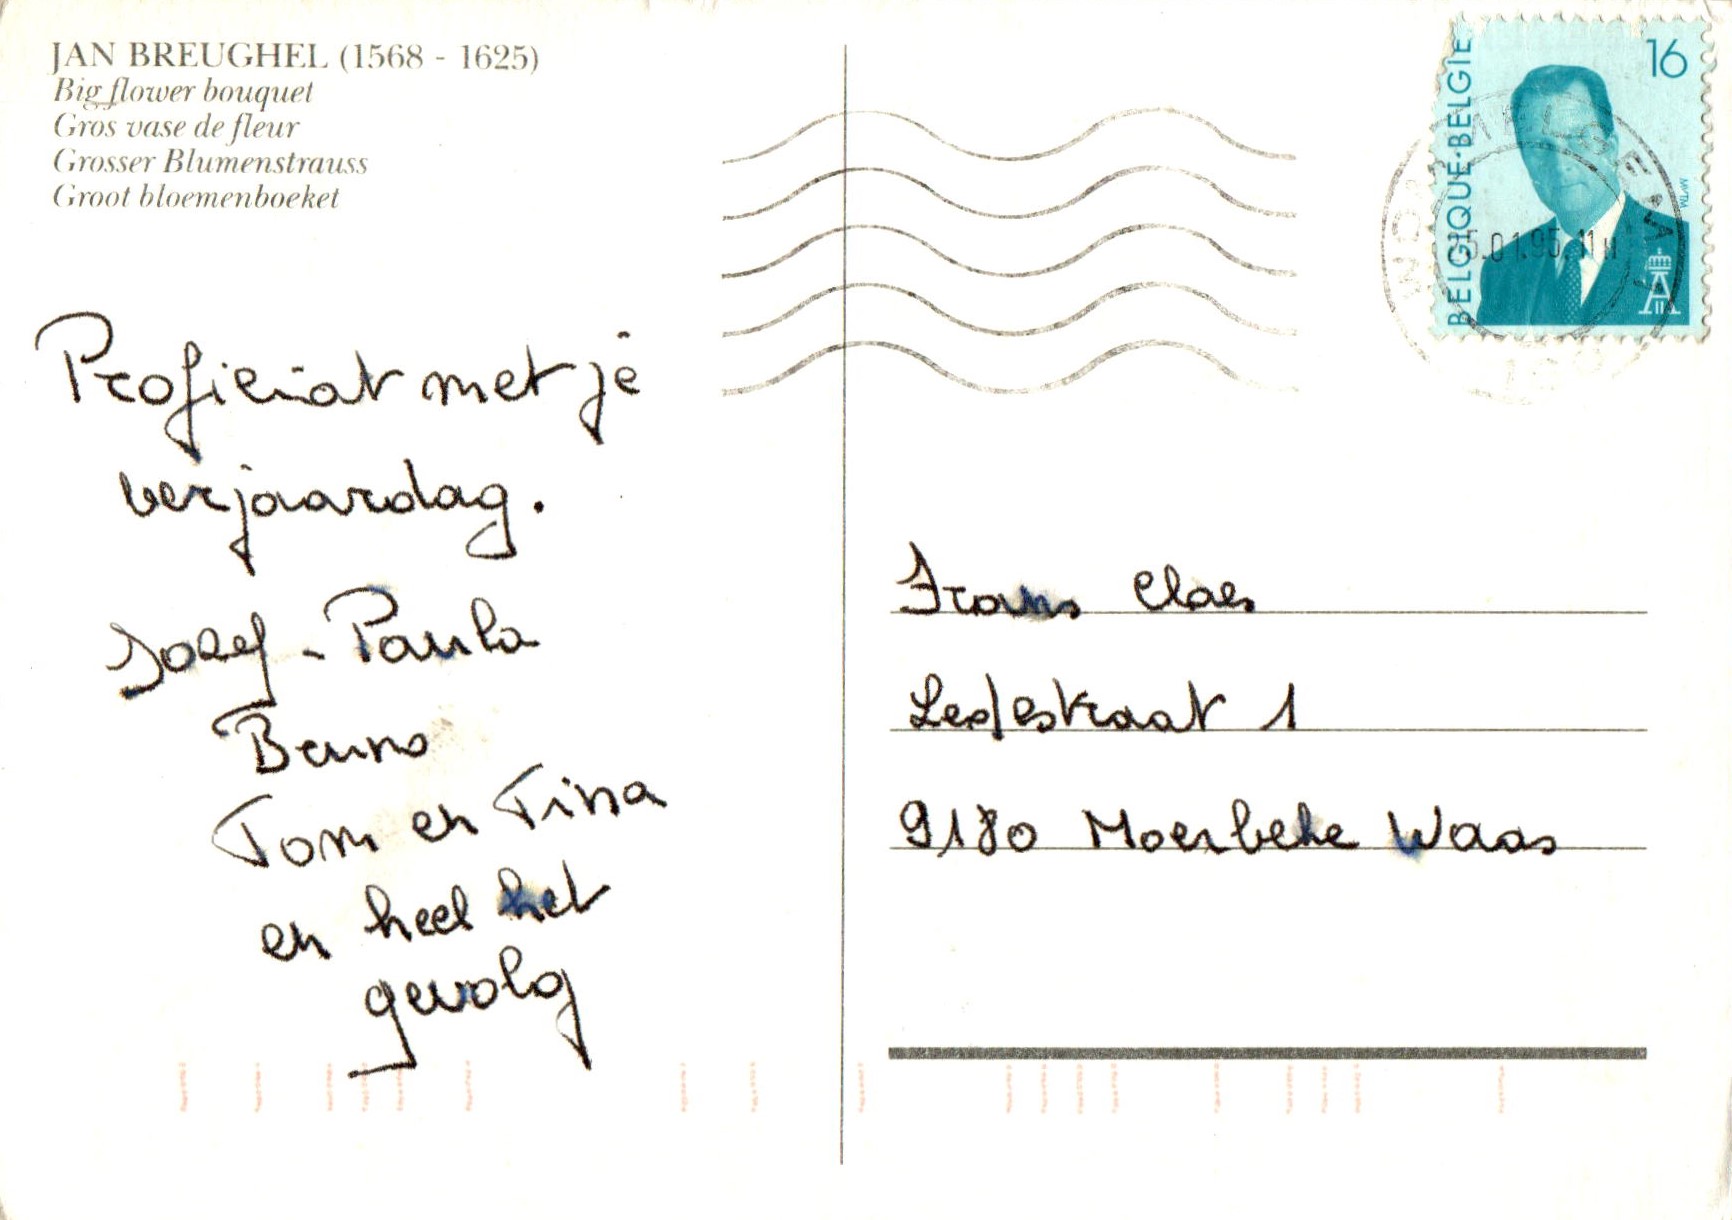 JAN BREUGHEL (1568 - 1625)
Big flower bouquet
Gros vase de fleur
Grosser Blumenstrauss
Groot bloemenboeket
BELGIQUE·BELGIË
16
MVTM
5.01.95.11H
Proficiat met je
verjaardag.
Jozef - Paula
Bruno
Tom en Tina
en heel het
gevolg
Frans Claes
1
9180 Moerbeke Waas